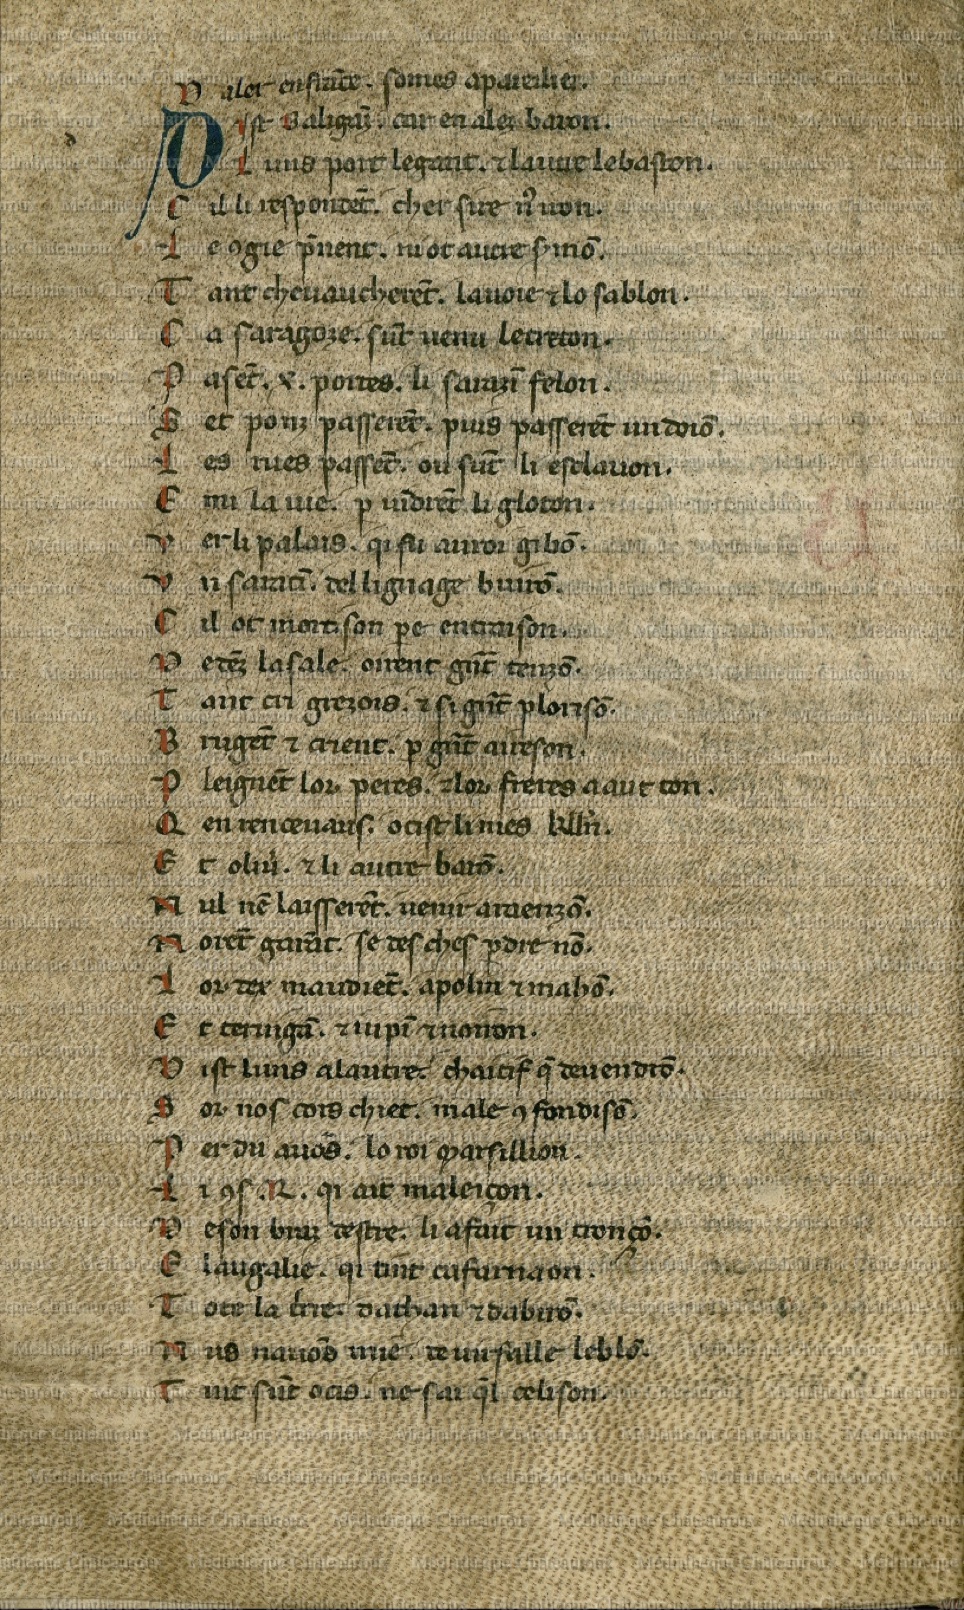 D aler en france. somes apareillier.
Dist Baligāt. car en alez baron.
L uns port le gant. ⁊ lautre le baston.
C il li respondēt. cher sire nos iron.
L e ꝯgie prenent. ni ot autre sꝑmō.
T ant cheuaucherēt. la uoie ⁊ lo sablon.
C a saragoze. sūt uenu le creton.
P asēt. x. portes. li sarazī felon.
S et ponz passerēt. puis passerēt un doiō.
L es rues passēt. ou sūt li esclauon.
E mi la uile. ꝑ uīdrēt li gloton.
V er li palais. qi fu au roi gibō.
V n saracī. del lignage buirō.
C il ot mort son pere en traison.
D edēz la sale. oirent grāt tenzō.
T ant cri grezois. ⁊ si grāt plorisō.
B rugēt ⁊ crient. ꝑ grāt aireson.
P leignēt lor peres. ⁊ lor freres a aut ton.
Q en renceuaus. ocist li nies kllῑn.
E t oliu̾. ⁊ li autre barō.
N ul nē laisserēt. uenir a raenzō.
N orēt garāt. se des chef ꝑdre nō.
L or dex maudiēt. apolin ⁊ mahō.
E t teruigā. ⁊ iupī ⁊ noiron.
D ist luns a lautre. chaitif q̄ deuendrō.
S or nos cors chiet. male ꝯfondisō.
P erdu auōs. lo roi marsillion.
L i ꝯs .R. qi ait maleiçon.
D e son braz destre. li a fait un tronçō.
E laugalie. qi tint cafarnaon.
T ote la t̄re. dathan ⁊ dabirō.
N us nauōs mie. de iursalle le blō.
T uit sūt ocis. ne sai qel celison.